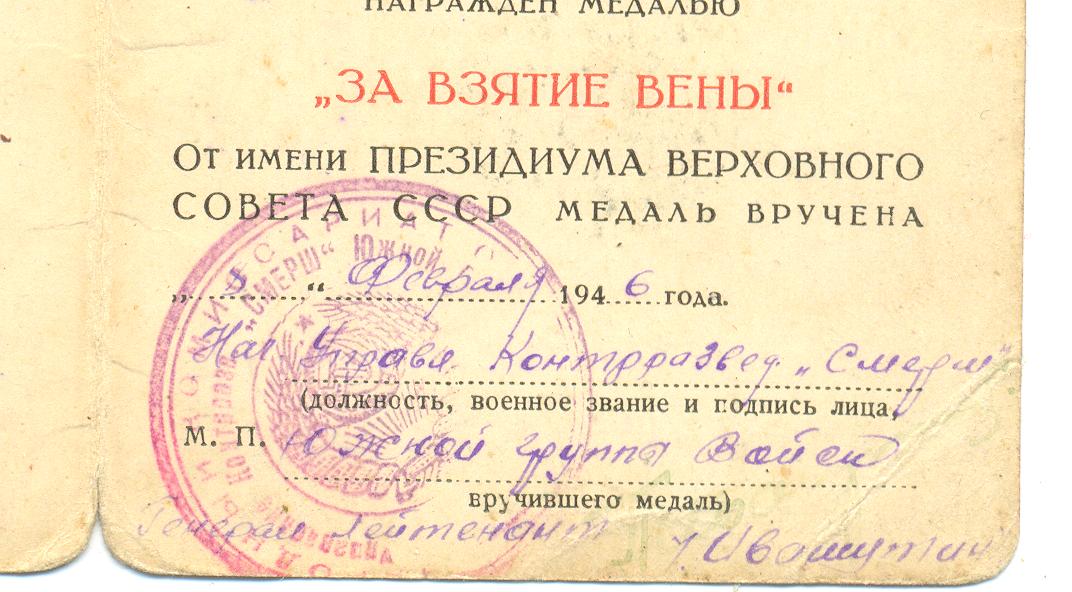 НАГРАЖДЕН МЕДАЛЬЮ
„ЗА ВЗЯТИЕ ВЕНЫ“
ОТ ИМЕНИ ПРЕЗИДИУМА ВЕРХОВНОГО
СОВЕТА СССР МЕДАЛЬ ВРУЧЕНА
„ “ Февраля 1946 года.
Нач. Управл. Контрразвед. „Смерш“
(должность, военное звание и подпись лица,
М. П. Южной группы Войск
вручившего медаль)
Генерал Лейтенант Ивашутин
„СМЕРШ“ Южной
Управление контрразведки